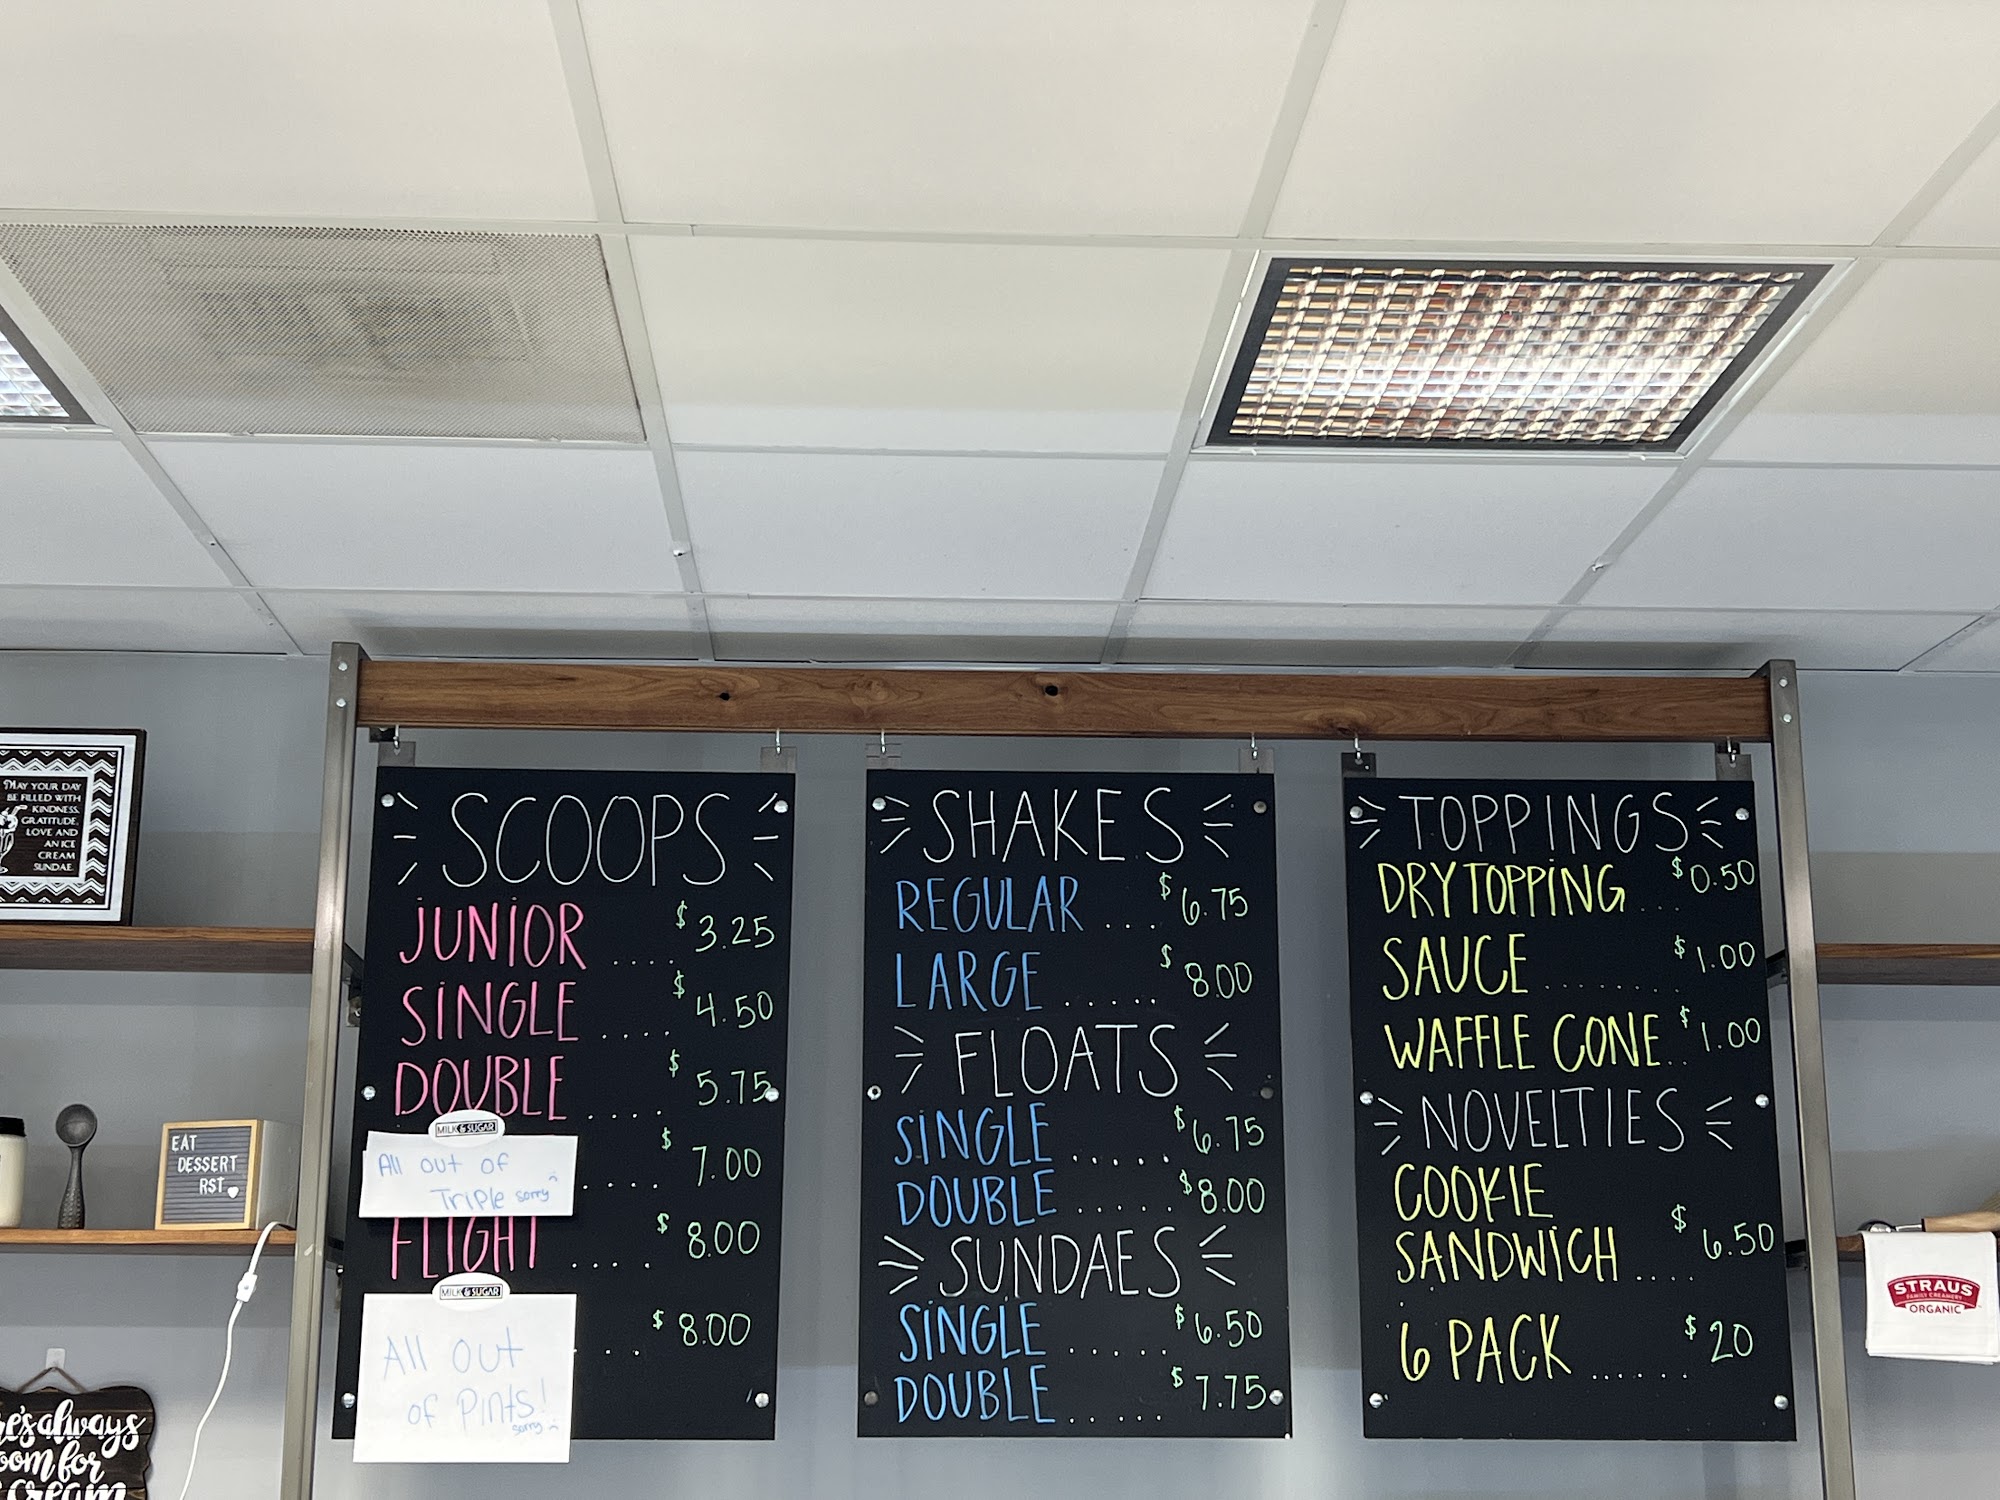 MAY YOUR DAY
BE FILLED WITH
KINDNESS,
GRATITUDE,
LOVE AND
AN ICE
CREAM
SUNDAE.
EAT
DESSERT
1RST
always
for
SCOOPS
JUNIOR .... $3.25
SINGLE .... $4.50
DOUBLE .... $5.75
MILK & SUGAR
All out of
Triple sorry
.... $7.00
FLIGHT .... $8.00
MILK & SUGAR
All out
of Pints!
sorry
... $8.00
SHAKES
REGULAR ... $6.75
LARGE ..... $8.00
FLOATS
SINGLE ..... $6.75
DOUBLE ..... $8.00
SUNDAES
SINGLE ..... $6.50
DOUBLE ..... $7.75
TOPPINGS
DRY TOPPING ... $0.50
SAUCE ........ $1.00
WAFFLE CONE.. $1.00
NOVELTIES
COOKIE
SANDWICH .... $6.50
6 PACK ...... $20
STRAUS
FAMILY CREAMERY
ORGANIC